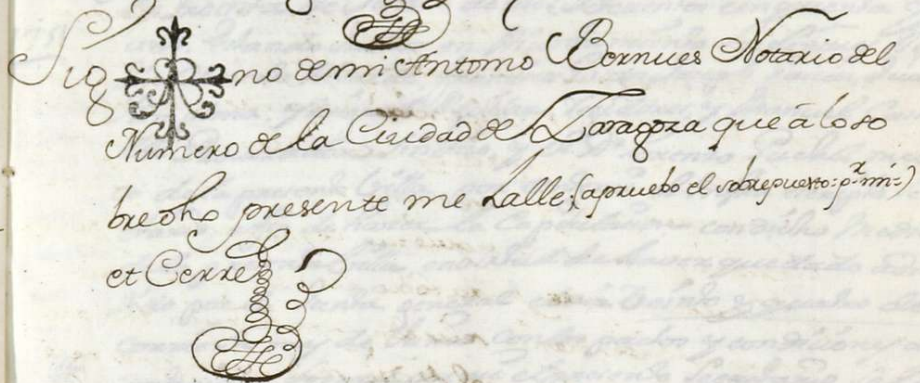 Sig no de mi Antonio Bernues Notario del
Numero de la Ciudad de Zaragoza que â lo so
bredho presente me halle; (apruebo el sobrepuesto: pr. mi=)
et Cerre